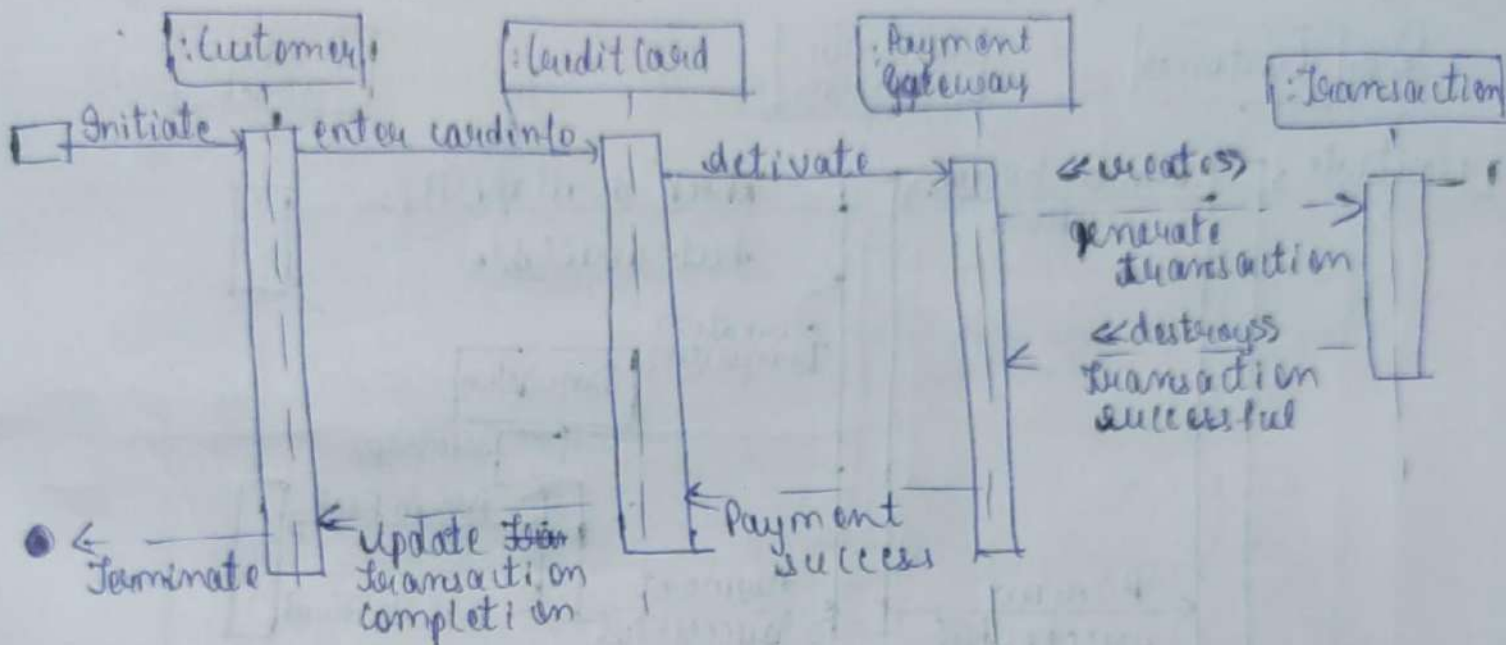 :Customer
:Credit Card
:Payment
gateway
:Transaction
Initiate
enter cardinfo
activate
<<creates>>
generate
transaction
<<destroys>>
transaction
successful
Payment
success
Update
transaction
completion
Terminate